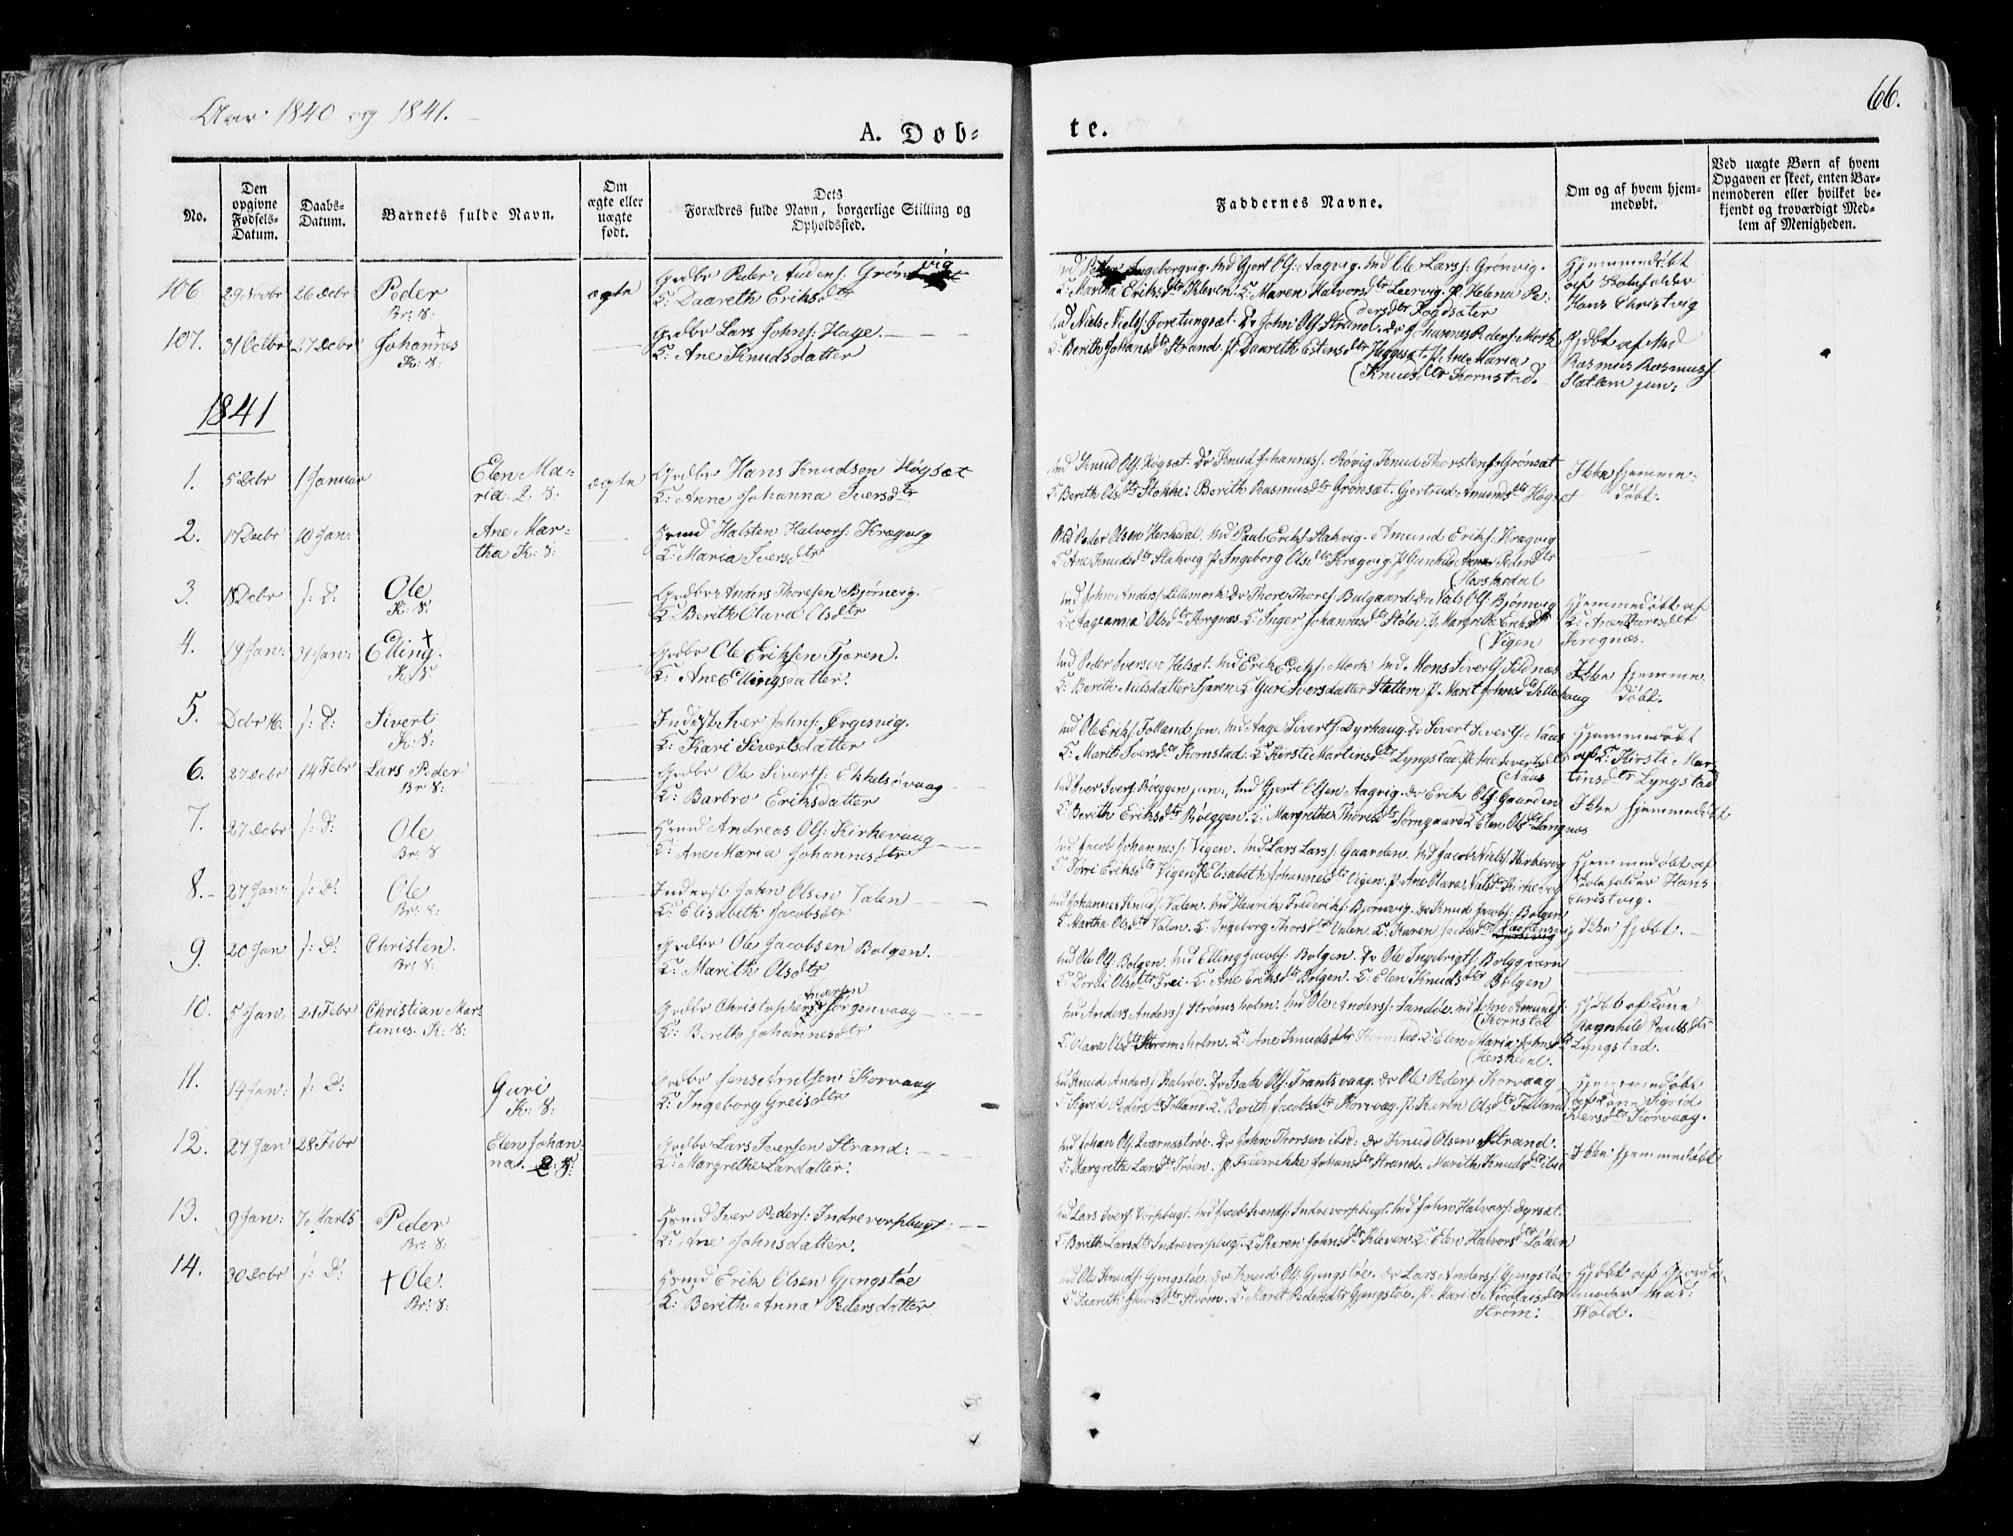 Aar 1840 og 1841.
66.
A. Døb-
te.
No.
Den opgivne Fødsels-Datum.
Daabs-Datum.
Barnets fulde Navn.
Om ægte eller uægte født.
Dets Forældres fulde Navn, borgerlige Stilling og Opholdssted.
Faddernes Navne.
Om og af hvem hjemmedøbt.
Ved uægte Børn af hvem Opgaven er skeet, enten Barnemoderen eller hvilket bekjendt og troværdigt Medlem af Menigheden.
106 29 Novbr 26 Decbr Peder ægte Grdbr Peder Grønvig
Br: 8:
K: Daareth Eriksdtr
Ingeborgvig. Ml Gjert Ols: Aagvig. Ml Ole Larss: Grønvig.
K: Martha Eriksdtr Kleven. K: Maren Halvorsdtr Leervig. P. Helena Pe-
(dersdtr Fogdsæter
Hjemmedøbt
af Kirkesanger
Hans Christvig
107. 31 Octbr 27 Decbr Johannes Grdbr Lars Johns: Hage.
K: 8:
K: Ane Knudsdatter
Niels Niels: Foretungsæt. Do John Ols: Strand. do Johannes Peders: Mork
K: Berith Johansdtr Strand. P. Daareth Estensdtr Høgset P. Ane Maria
(Knudsdtr Kornstad.
Hjdbt af
Rasmus Rasmuss:
Slatlem jun:
1841
1. 5 Decbr 1 Januar Elen Ma-
ria. 2. 8: ægte Grdbr Hans Knudsen Høgsæt
K: Anne Johanna Iversdtr
Knud Ols: Høgsæt. Do Knud Johanness: Røvig Knud Thorstens: Grønsæt
K: Berith Olsdtr Stokke: Berith Rasmusdtr Grønsæt. Gjertrud Amundsdtr Høgset
Ikke hjemme-
døbt.
2. 17 Decbr 10 Jan: Ane Mar-
tha K: 8: Hsmd Halsten Halvors: Krægvig
K: Maria Iversdtr
Peder Olsen Herskdal. Paul Eriks: Stakvig. Amund Eriks: Krægvig
K: Ane Knudsdtr Stakvig P. Ingeborg Olsdtr Krægvig. P. Gunhild Pedersdtr
(Herskedal
3. 18 Decbr s: D: Ole Grdbr Anders Thoresen Bjørnevig.
K: 8:
K: Berith Olava Olsdtr
John Anders: Lillemork. Do Thore Thores: Bulgaard. Do Niels Ols: Bjørnvig
Olsdtr Kregnæs K: Inger Johannesdtr Stølen P. Margrethe Eriksdtr
(Vigen
Hjemmedøbt af
Kregnæs.
4. 19 Jan: 31 Jan: Elling. Grdbr Ole Eriksen Fjøren.
K: 8:
K: Ane Ellingsdatter.
Peder Iversen Helsæt. Erik Eriks: Mork Mons Siverts: Sildnæs
K: Berith Nielsdatter Fjøren. K: Guri Iversdatter Slatlem P. Marit Johnsdtr Lillehaug
Ikke hjemme-
døbt.
5. Decbr 16. s: D: Sivert Inderst Iver Johns: Ørgesvig.
K: 8:
K: Kari Sivertsdatter
Ole Eriks: Folland jun. Aage Siverts: Dyrhaug. do Sivert Siverts: Naas
K: Marit Iversdtr Kornstad. K: Kirsti Martinsdtr Lyngstad. P. Ane Sivertsdtr
(Naas
Hjemmedøbt
af K: Kirsti Mar-
tinsdtr Lyngstad
6. 27 Decbr 14 Febr Lars Peder Grdbr Ole Siverts: Ekkelsøvaag
Br 8:
K: Barbro Eriksdatter
Iver Ivers: Røeggen jun:, Gjert Olsen Aagvig. do Erik Ols: Gaarden
K: Berith Eriksdtr Røeggen. K: Margrethe Thoresdtr Sørngaard. K: Elen Olsdtr Langnæs
Ikke hjemmedøbt
7. 27 Decbr s: D: Ole Hsmd Andreas Ols: Kirkevaag
Br: 8
K: Ane Maria Johannesdtr
Jacob Johanness: Vigen. Lars Larss: Gaarden. Jacob Niels: Kirkevig
Eriksdtr Vigen. P. Elisabeth Johannesdtr Vigen. P. Ane Olava Nielsdtr Kirkevig
Hjemmedøbt af
Hans
Christvig.
8. 27 Jan: s: D: Ole Inderst: John Olsen Valen
Br: 8:
K: Elisabeth Jacobsdtr
Johannes Knuds: Valen. Henrik Frederiks: Bjørnvig. do Knud Jacobs: Bolgen
K: Martha Olsdtr Valen. K: Ingeborg Thorsdtr Valen. K: Karen Jacobsdtr
Ikke hjdbt.
9. 20 Jan s: D: Christen. Grdbr Ole Jacobsen Bolgen.
Br: 8:
K: Marith Olsdtr
Ole Ols: Bolgen. Elling Jacobs: Bolgen. Do Ole Ingebrigts: Bolgværn
K: Dordi Olsdtr Frei. K: Ane Eriksdtr Bolgen. K: Elen Knudsdtr Bolgen
10. 5 Jan: 21 Febr Christian Mar-
tinus. K: 8: Grdbr Christopher Iversen Sørgenvaag
K: Berith Johannesdtr
Anders Anders: Strømsholm. Ole Anders: Sandøe. John Amunds:
(Kornstad
K: Olava Olsdtr Strømsholm. K: Ane Knudsdtr Kornstad. K: Elen Maria Johnsdtr
(Herskdal.
Hjdbt af Kone
Ragnhild Paulsdtr
Lyngstad.
11. 14 Jan: s: D: Guri
K: 8: Grdbr Jens Arntsen Korvaag
K: Ingeborg Greisdtr
Knud Anders: Kalvøe. Do Isak Ols: Frantsvaag. do Ole Peders: Korvaag
K: Sigrid Pedersdtr Folland. K: Berith Jacobsdtr Korvaag. P. Karen Olsdtr Folland
Hjemmedøbt
af Kone Sigrid
Korvaag.
12. 27 Jan 28 Febr Elen Johan-
na. 2: 8: Grdbr Lars Iversen Strand:
K: Margrethe Larsdatter:
Johan Ols: Qværnestrøe. Do John Thorsen ibid: do Knud Olsen Strand.
K: Margrethe Larsdtr Trøen. P. Frederikke Johansdtr Strand. Marith Knudsdtr ibid
Ikke hjemmedøbt
13. 9 Jan: 7 Marts Peder Hsmd Iver Peders: Indrevorpbugt.
Br: 8:
K: Ane Johnsdatter.
Lars Ivers: Vorpbugt. Jacob Svends: Indrevorpbugt. John Halvors: Dyrsæt.
K: Berith Larsdtr Indrevorpbugt. K: Karen Johnsdtr Kleven. K: Elen Halvorsdtr Løken
14. 30 Decbr s: D: Ole Hsmd Erik Olsen Gjengstøe
Br: 8:
K: Berith Anna Pedersdatter
Ole Knuds: Gjengstøe. do Knud Ols: Gjengstøe. do Lars Anders: Gjengstøe
K: Daareth Jacobsdtr Strøm. K: Marit Pedersdtr Gjengstøe. P. Mari Nicolaisdtr
Strøm:
Hjdbt af Gjorde-
moder Mad:
Wold.